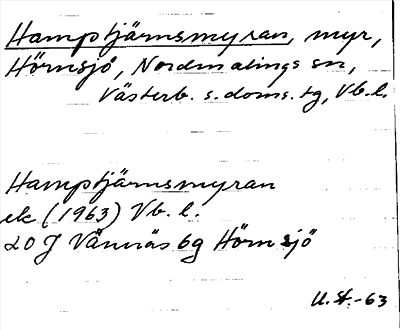 Hamptjärnsmyran, myr,
Hörnsjö, Nordmalings sn,
Västerb. s. doms. tg, Vb. l.
Hamptjärnsmyran
ek (1963) Vb. l.
20 J Vännäs 6g Hörnsjö
U. St. -63